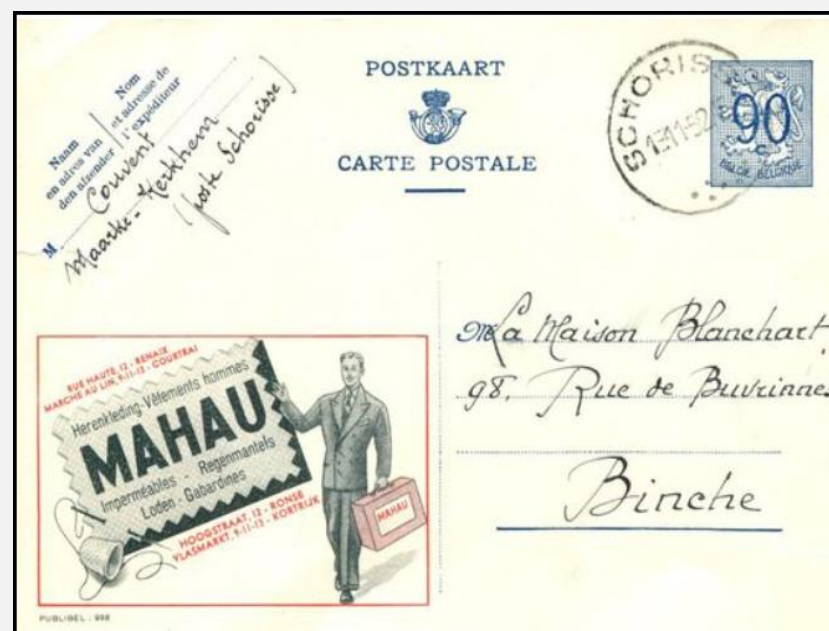 Naam
en adres van
den afzender
Nom
et adresse de
l'expéditeur
M Couvent
Maarke-Kerkhem
(poste Schorisse)
POSTKAART
CARTE POSTALE
SCHORIS
13 11-52
90
BELGIE BELGIQUE
M La Maison Blanchart
98. Rue de Buvrinnes
Binche
RUE HAUTE, 12 - RENAIX
MARCHE AU LIN, 9-11-13 - COURTRAI
Herenkleding-Vêtements hommes
MAHAU
Imperméables - Regenmantels
Loden - Gabardines
HOOGSTRAAT, 12 - RONSE
VLASMARKT, 9-11-13 - KORTRIJK
MAHAU
PUBLIBEL : 998